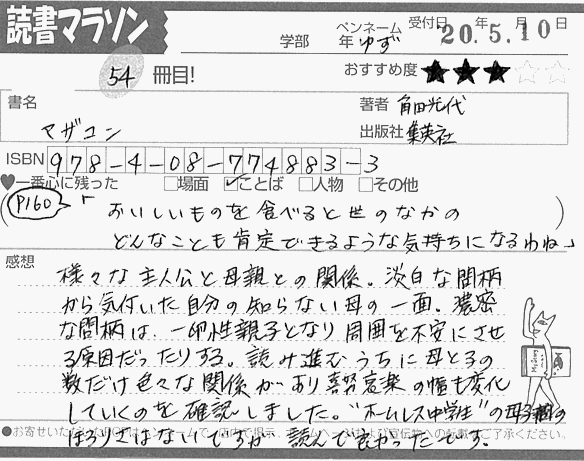 読書マラソン
学部 年 ペンネーム ゆず 受付日 20.年5.月10日
54 冊目! おすすめ度 ★★★☆☆
書名 マザコン
著者 角田光代
出版社 集英社
ISBN 978-4-08-774883-3
♥一番心に残った □場面 ☑ことば □人物 □その他
(P160 「おいしいものを食べると世のなかの
どんなことも肯定できるような気持ちになるわね」)
感想
様々な主人公と母親との関係。淡白な間柄
から気付いた自分の知らない母の一面。濃密
な間柄は、一卵性親子となり周囲を不安にさせ
る原因だったりする。読み進むうちに母と子の
数だけ色々な関係があり喜努哀楽の幅も変化
していくのを確認しました。"ホームレス中学生"の母子間の
ほろりさはないですが、読んで良かったです。
●お寄せいただいたPOPは